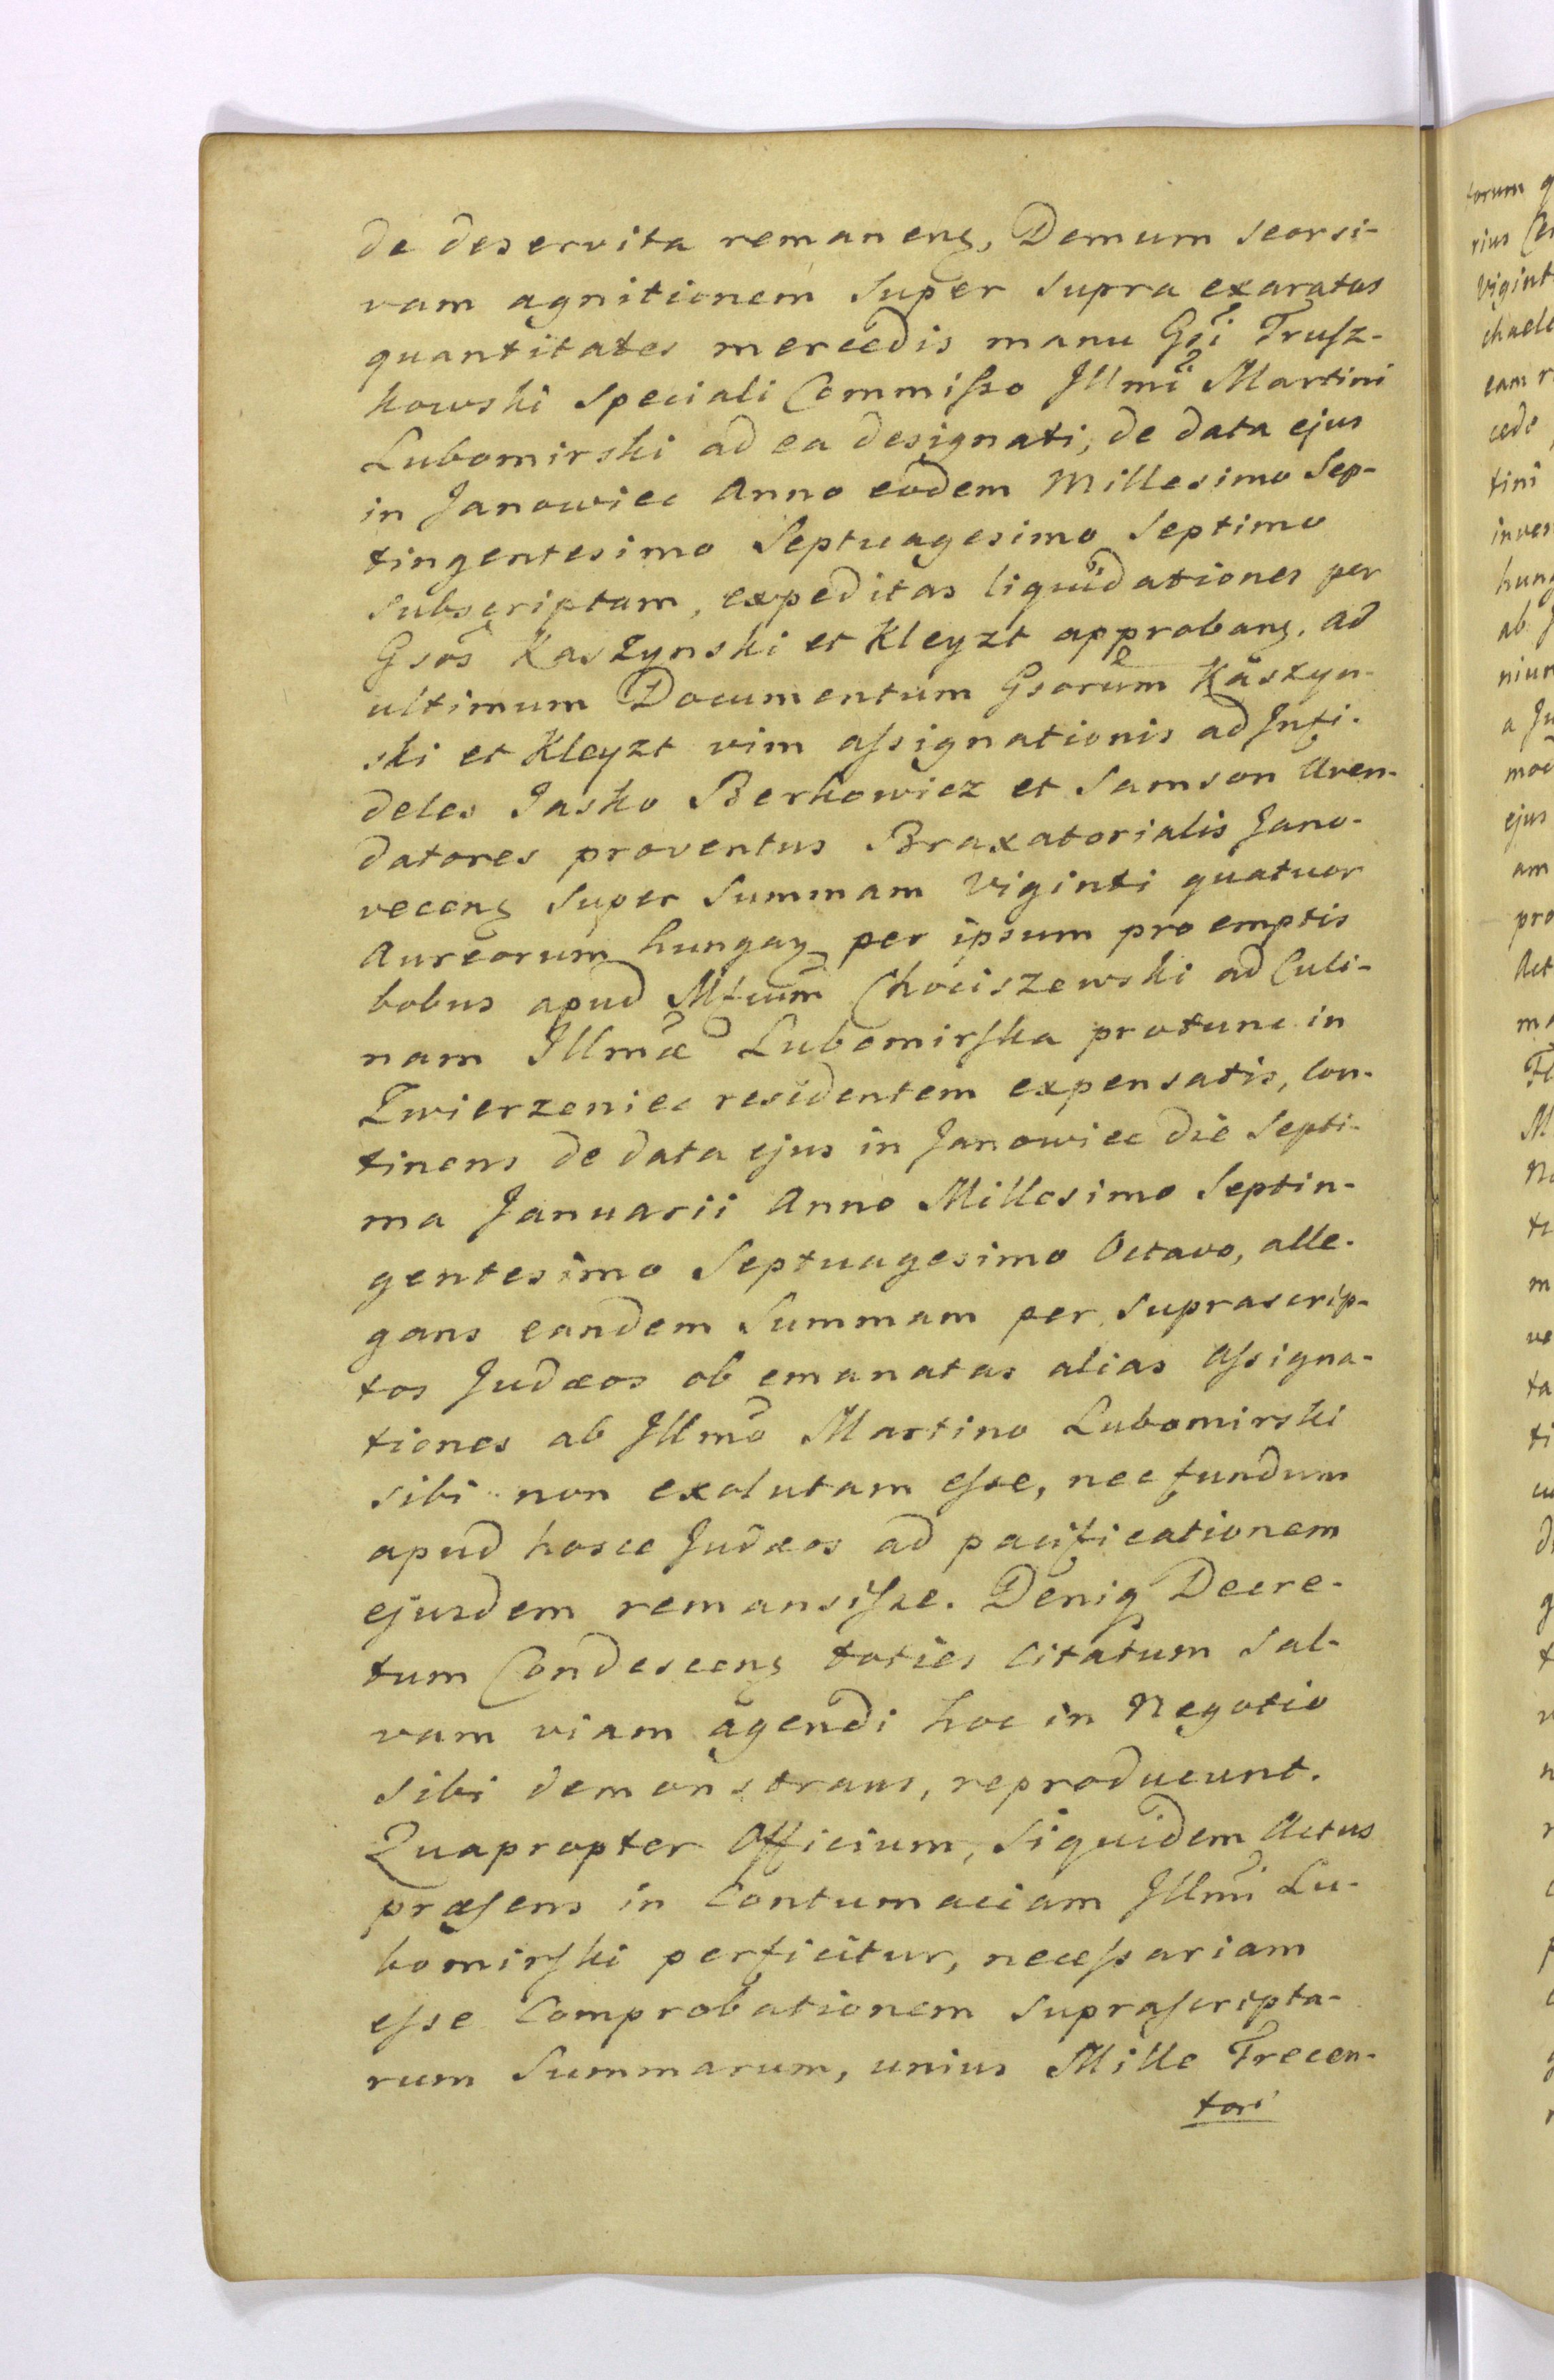 de deservita remanens, Demum seorsi-
vam agnitionem super supra exaratas
quantitates mercedis manu Gsi Trusz-
kowski speciali Commisso Illmi Martini
Lubomirski ad ea designati, de data ejus
in Janowiec Anno eodem Millesimo Sep-
tingentesimo Septuagesimo Septimo
subscriptam, expeditas liquidationes per
Gsos Kaszynski et Kleyzt approbans, ad
ultimum Documentum Gsorum Kaszyn-
ski et Kleyzt vim assignationis ad Infi-
deles Jasko Berkowicz et Samson Aren-
datores proventus Braxatorialis Jano-
vecens super Summam Viginti quatuor
Aureorum hungar per ipsum pro emptis
bobus apud Mfcum Chociszewski ad Culi-
nam Illmæ Lubomirska protunc in
Zwierzeniec residentem expensatis, con-
tinens de data ejus in Janowiec die Septi-
ma Januarii Anno Millesimo Septin-
gentesimo Septuagesimo Octavo, alle-
gans eandem Summam per suprascrip-
tos Judæos ob emanatas alias Assigna-
tiones ab Illmo Martino Lubomirski
sibi non exolutam esse, nec fundum
apud hosce Judæos ad pacificationem
ejusdem remansisse. Deniq Decre-
tum Condescens toties citatum sal-
vam viam agendi hoc in Negotio
sibi demonstrans, reproducunt.
Quapropter Officium, siquidem Actus
præsens in Contumaciam Illmi Lu-
bomirski perficitur, necessariam
esse Comprobationem suprascripta-
rum Summarum, unius Mille Trecen-
tori